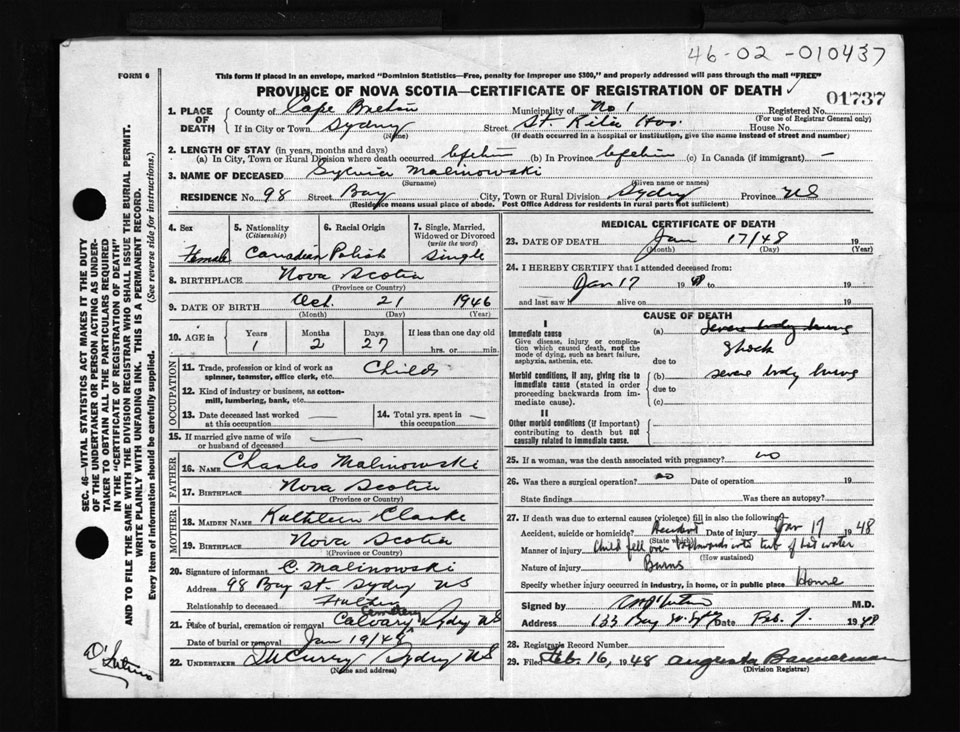 46-02-010437
FORM 6
This form if placed in an envelope, marked "Dominion Statistics—Free, penalty for improper use $300," and properly addressed will pass through the mail "FREE"
PROVINCE OF NOVA SCOTIA—CERTIFICATE OF REGISTRATION OF DEATH
01737
1. PLACE OF DEATH County of Cape Breton Municipality of No 1 Registered No.
(For use of Registrar General only)
If in City or Town Sydney Street St. Rita Hos. House No.
(Name) (If death occurred in a hospital or institution, give the name instead of street and number)
2. LENGTH OF STAY (in years, months and days)
(a) In City, Town or Rural Division where death occurred lifetime (b) In Province lifetime (c) In Canada (if immigrant) —
3. NAME OF DECEASED Sylvia Malinowski
(Surname) (Given name or names)
RESIDENCE No 98 Street Bay City, Town or Rural Division Sydney Province NS
(Residence means usual place of abode. Post Office Address for residents in rural parts not sufficient)
4. Sex Female
5. Nationality (Citizenship) Canadian
6. Racial Origin Polish
7. Single, Married, Widowed or Divorced (write the word) Single
8. BIRTHPLACE Nova Scotia
(Province or Country)
9. DATE OF BIRTH Oct. 21 1946
(Month) (Day) (Year)
10. AGE in Years 1 Months 2 Days 27 If less than one day old
hrs. or min.
OCCUPATION
11. Trade, profession or kind of work as spinner, teamster, office clerk, etc. Child
12. Kind of industry or business, as cotton-mill, lumbering, bank, etc.
13. Date deceased last worked at this occupation —
14. Total yrs. spent in this occupation —
15. If married give name of wife or husband of deceased —
FATHER
16. NAME Charles Malinowski
17. BIRTHPLACE Nova Scotia
(Province or Country)
MOTHER
18. MAIDEN NAME Kathleen Clarke
19. BIRTHPLACE Nova Scotia
(Province or Country)
20. Signature of informant C. Malinowski
Address 98 Bay St. Sydney NS
Relationship to deceased Father
21. Place of burial, cremation or removal Calvary Cemetery Sydney NS
Date of burial or removal Jan 19/48
22. UNDERTAKER Sydney NS
(Name and address)
MEDICAL CERTIFICATE OF DEATH
23. DATE OF DEATH Jan 17/48 19
(Month) (Day) (Year)
24. I HEREBY CERTIFY that I attended deceased from:
Jan 17 1948 to 19
and last saw h alive on 19
CAUSE OF DEATH
I
Immediate cause (a) severe body burns
Give disease, injury or complication which caused death, not the mode of dying, such as heart failure, asphyxia, asthenia, etc. Shock
due to
Morbid conditions, if any, giving rise to immediate cause (stated in order proceeding backwards from immediate cause). (b) severe body burns
due to
(c)
II
Other morbid conditions (if important) contributing to death but not causally related to immediate cause.
25. If a woman, was the death associated with pregnancy? no
26. Was there a surgical operation? no Date of operation 19
State findings Was there an autopsy?
27. If death was due to external causes (violence) fill in also the following:
Accident, suicide or homicide? Accident Date of injury Jan 17 1948
(State which)
Manner of injury Child fell over backwards into tub of hot water
(How sustained)
Nature of injury Burns
Specify whether injury occurred in industry, in home, or in public place Home
Signed by M.D.
Address 133 Bay Date Feb. 7. 1948
28. Registrars Record Number
29. Filed Feb. 16, 1948 Augusta Bannerman
(Division Registrar)
SEC. 46—VITAL STATISTICS ACT MAKES IT THE DUTY
OF THE UNDERTAKER OR PERSON ACTING AS UNDER-
TAKER TO OBTAIN ALL THE PARTICULARS REQUIRED
IN THE "CERTIFICATE OF REGISTRATION OF DEATH"
AND TO FILE THE SAME WITH THE DIVISION REGISTRAR WHO SHALL ISSUE THE BURIAL PERMIT.
WRITE PLAINLY WITH UNFADING INK. THIS IS A PERMANENT RECORD.
Every item of information should be carefully supplied. (See reverse side for instructions.)